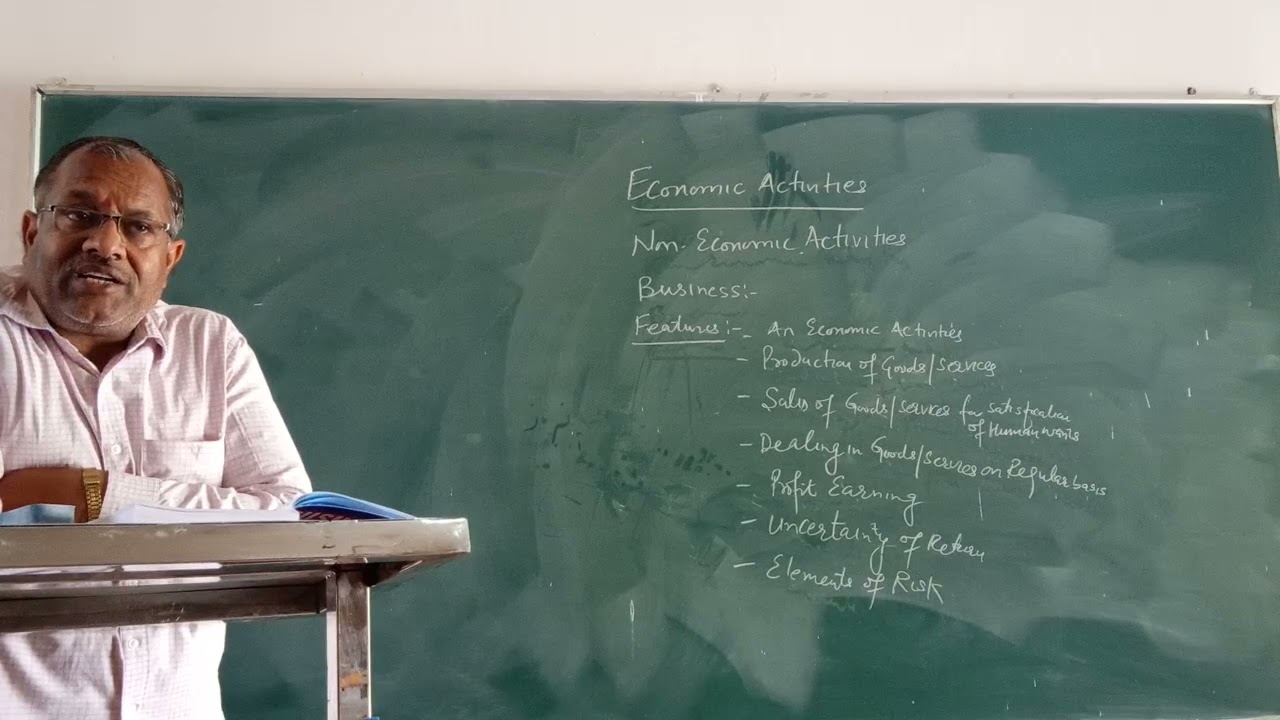 Economic Activities
Non-Economic Activities
Business:-
Features:- - An Economic Activities
- Production of Goods/Services
- Sales of Goods/Services for Satisfaction
of Human wants
- Dealing in Goods/Services on Regular basis
- Profit Earning
- Uncertainty of Return
- Elements of Risk